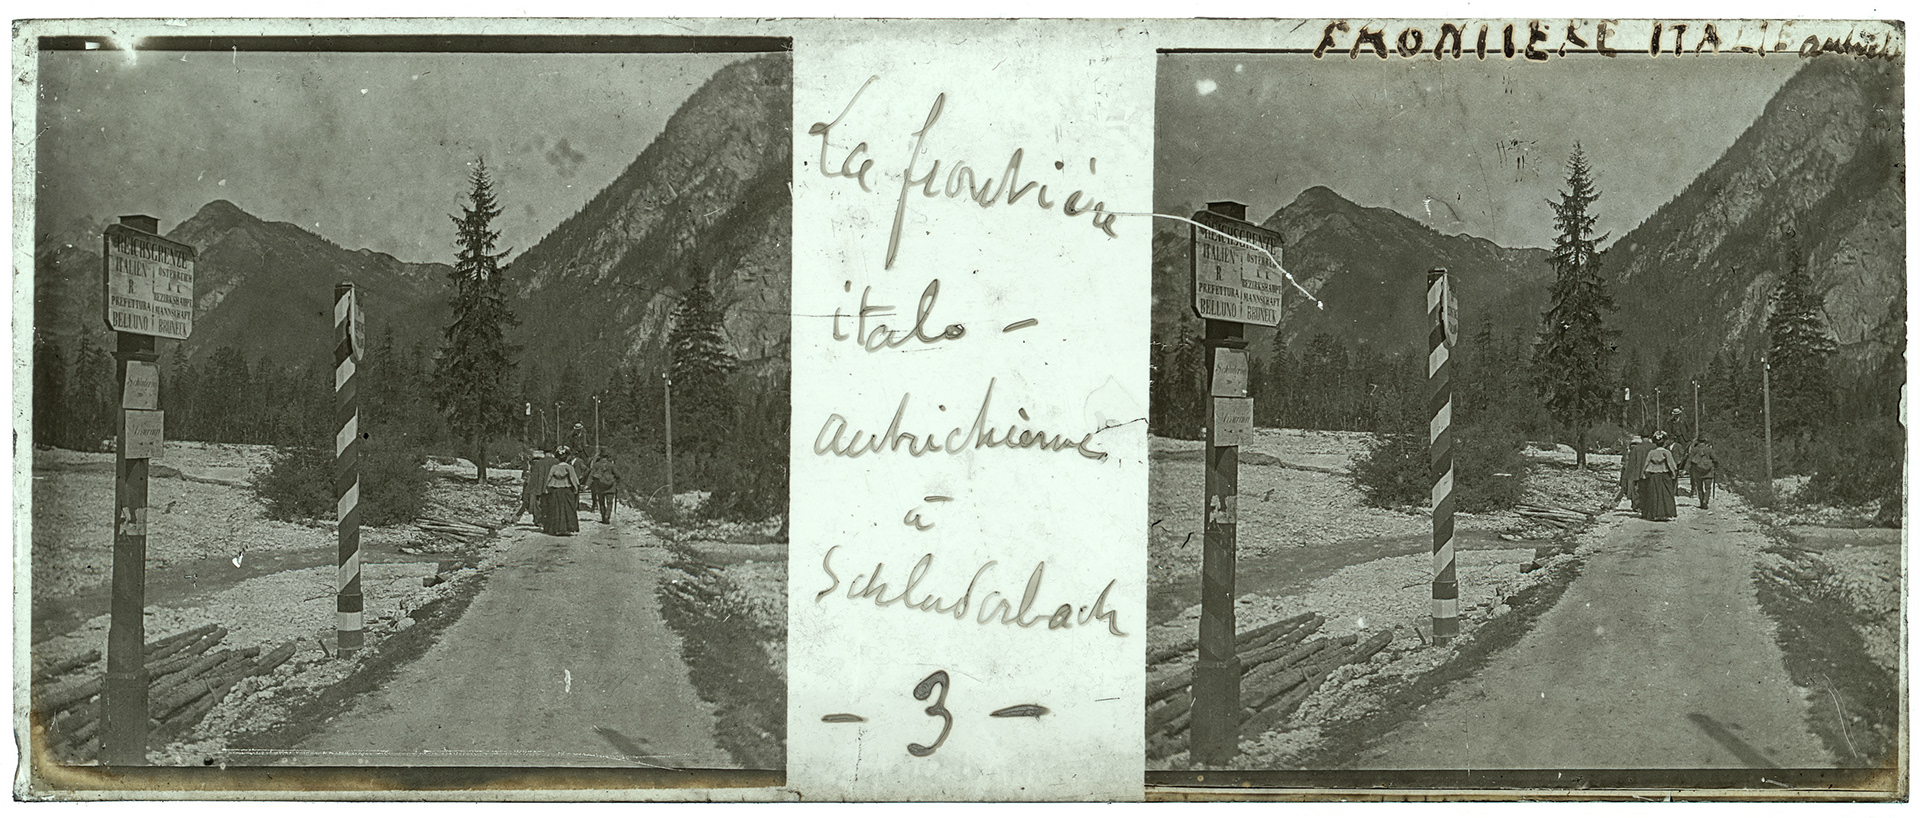 REICHSGRENZE
ITALIEN ÖSTERREICH
R. K. K.
PREFETTURA BEZIRKSHAUPT
MANNSCHAFT
BELLUNO BRUNECK
La frontière
italo -
autrichienne
à
Schluderbach
- 3 -
FRONTIERE ITALIE autrich
REICHSGRENZE
ITALIEN ÖSTERREICH
R. K. K.
PREFETTURA BEZIRKSHAUPT
MANNSCHAFT
BELLUNO BRUNECK